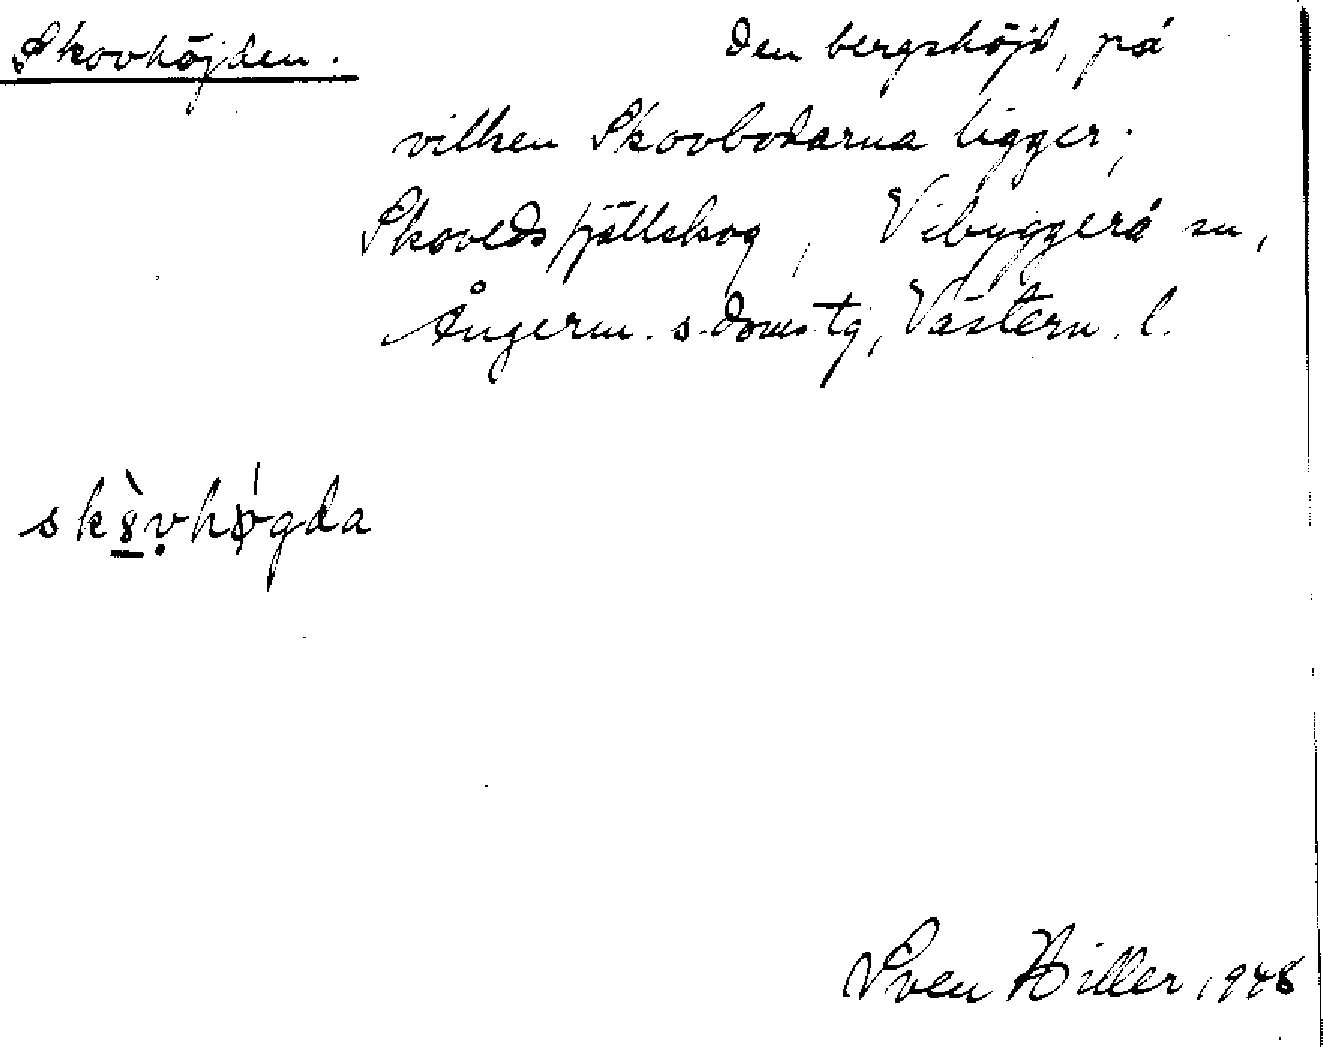 Skovhöjden.
den bergshöjd, på
vilken Skovbodarna ligger;
Skoveds fjällskog, Vibyggerå sn,
Ångerm. s. doms. tg, Västern. l.
Sven Hiller 1948